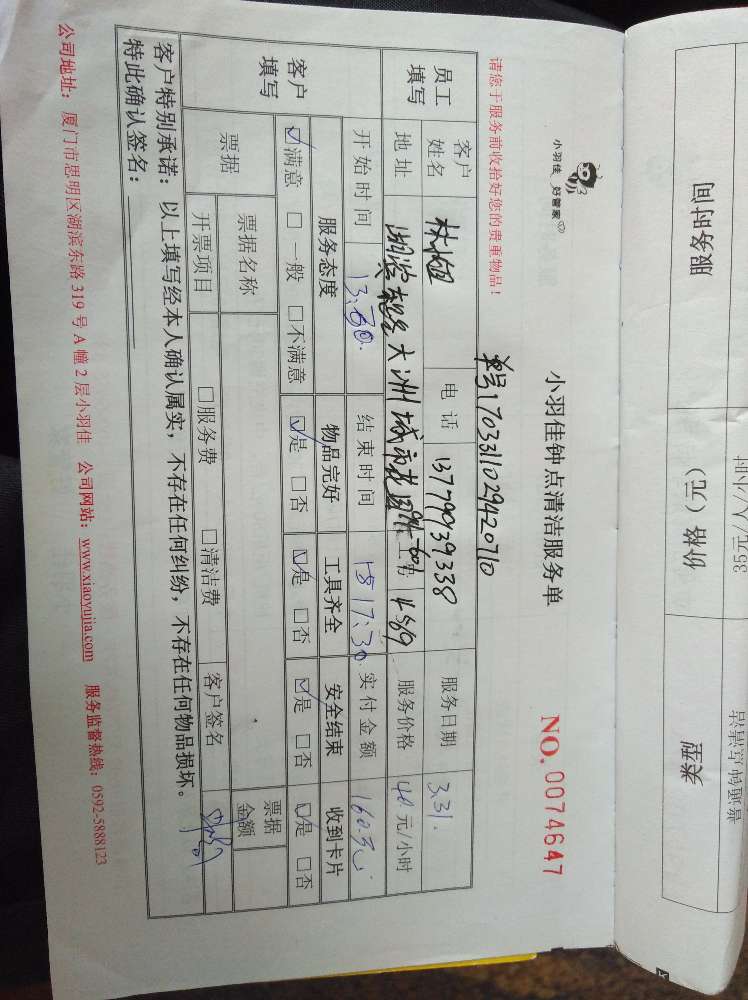 小羽佳 好管家
小羽佳钟点清洁服务单
NO.0074647
请您于服务前收拾好您的贵重物品！
单号170331029420710
员工填写 客户姓名 电话 13779939338 服务日期 3.31.
地址 大洲城市花园 工号 4569 服务价格 40.元/小时
开始时间 13:30. 结束时间 17:30. 实付金额 160.元
客户填写 服务态度 物品完好 工具齐全 安全结束 收到卡片
☑满意 □一般 □不满意 ☑是 □否 ☑是 □否 ☑是 □否 ☑是 □否
票据 票据名称 票据金额
开票项目 □服务费 □清洁费 客户签名
客户特别承诺：以上填写经本人确认属实，不存在任何纠纷，不存在任何物品损坏。
特此确认签名：
公司地址：厦门市思明区湖滨东路319号A幢2层小羽佳 公司网站：www.xiaoyujia.com 服务监督热线：0592-5888123
服务时间 价格（元） 类型
35元/人/小时